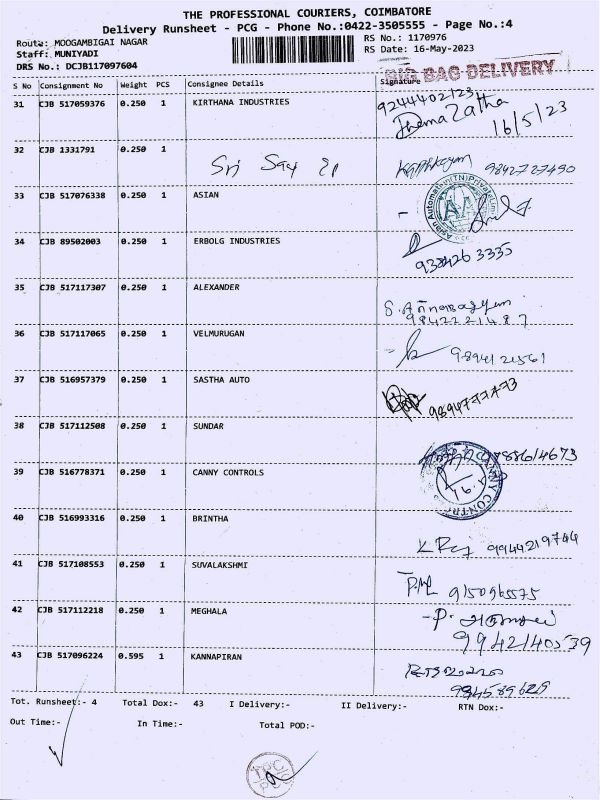 THE PROFESSIONAL COURIERS, COIMBATORE
Delivery Runsheet - PCG - Phone No.:0422-3505555 - Page No.:4
Route: MOOGAMBIGAI NAGAR
RS No.: 1170976
Staff: MUNIYADI
RS Date: 16-May-2023
DRS No.: DCJB117097604
BIG BAG DELIVERY
S No Consignment No Weight PCS Consignee Details Signature
31 CJB 517059376 0.250 1 KIRTHANA INDUSTRIES
9244402123
16/5/23
32 CJB 1331791 0.250 1
Sri Say
9842727490
33 CJB 517076338 0.250 1 ASIAN
34 CJB 89502003 0.250 1 ERBOLG INDUSTRIES
9384263335
35 CJB 517117307 0.250 1 ALEXANDER
9842221487
36 CJB 517117065 0.250 1 VELMURUGAN
9894121561
37 CJB 516957379 0.250 1 SASTHA AUTO
9894777473
38 CJB 517112508 0.250 1 SUNDAR
39 CJB 516778371 0.250 1 CANNY CONTROLS
40 CJB 516993316 0.250 1 BRINTHA
9944219744
41 CJB 517108553 0.250 1 SUVALAKSHMI
9150965575
42 CJB 517112218 0.250 1 MEGHALA
9942140539
43 CJB 517096224 0.595 1 KANNAPIRAN
Tot. Runsheet:- 4 Total Dox:- 43 I Delivery:- II Delivery:- RTN Dox:-
Out Time:- In Time:- Total POD:-